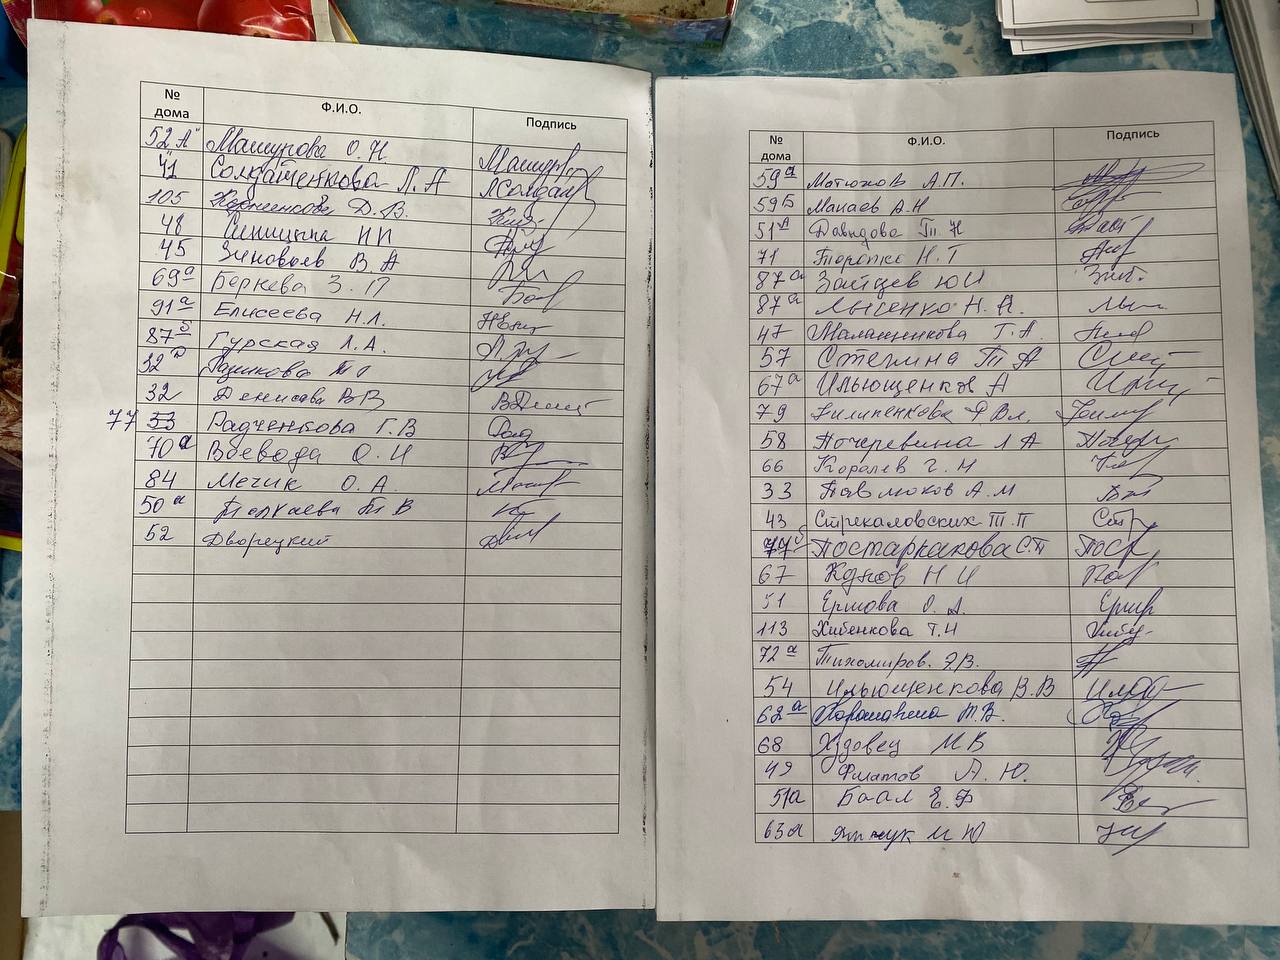 № дома Ф.И.О. Подпись
52 "А" Машурова О.Н
41 Солдатенкова Л.А
105 Д.В.
48 Синицина Н И
45 Зиновьев В А
69а З. П
91а Елисеева Н.Л.
87б Гурская Л.А.
32
32 Денисова В В
77 53 Радченкова Г.В
70а Воевода О. И
84 Мечик О. А.
50а Толкаева Т В
52 Дворецкий
№ дома Ф.И.О. Подпись
59а Матюхов А.П.
59Б Макаев А.Н
51А Давыдова Т. Н
71 Торопко Н. Т
87а Зайцев Ю И
87а Лысенко Н. Н.
47 Малащенкова Т. А.
57 Степина Т А
67а Ильющенков А
79 Филипенкова
58 Почеревина Л А
66 Королев Г. Н
33 Павлюков А. М
43 Стрекаловских Т. П
Постарнакова С.П
67 Н И
51 Ершова О. А.
113 Хибенкова Т. Н
72а Тихомиров. Э.В.
54 Ильющенкова В. В
62а Т.В.
68 Худовец М В
49 Филатов А. Ю.
51а Баал Е. Ф
63а М Ю